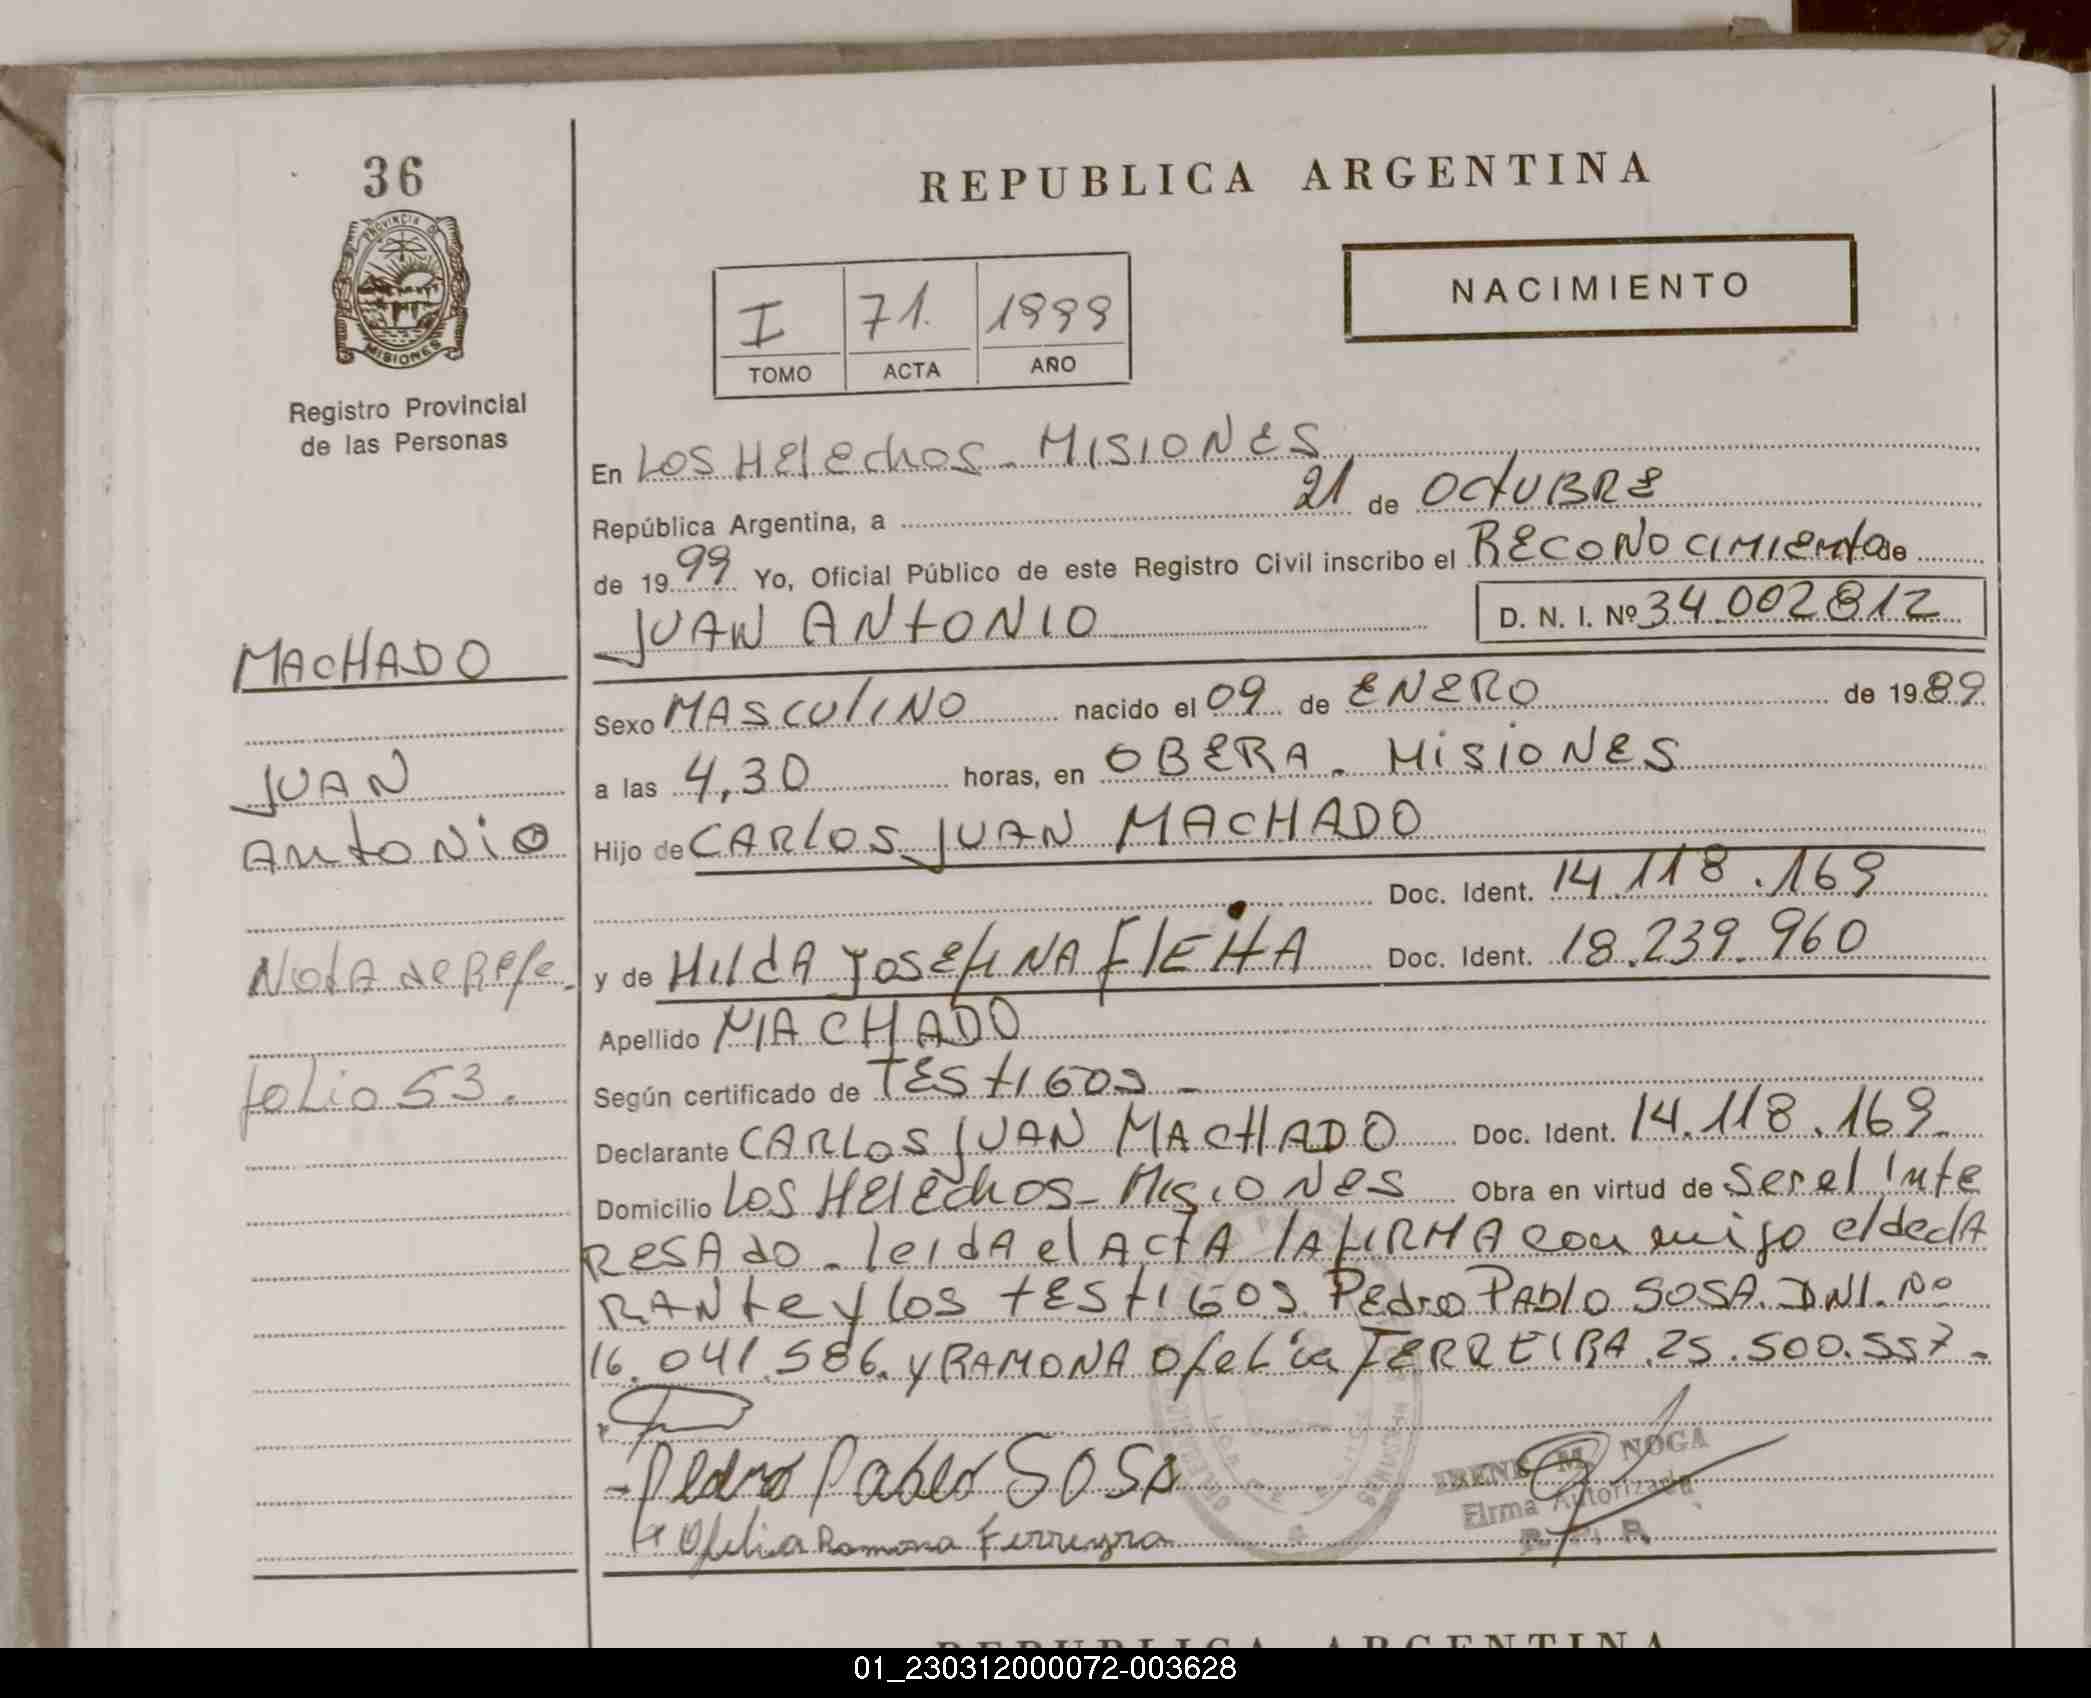 36
PROVINCIA DE
MISIONES
Registro Provincial
de las Personas
MACHADO
JUAN
ANTONIO
NOTA de Refe.
folio 53.
REPUBLICA ARGENTINA
NACIMIENTO
I 71. 1999
TOMO ACTA AÑO
En LOS HElEchos - MISIONES
República Argentina, a 21 de OCTUBRE
de 1999 Yo, Oficial Público de este Registro Civil inscribo el RECONOCIMIENTO de
JUAN ANTONIO D. N. I. Nº 34.002812
Sexo MASCULINO nacido el 09 de ENERO de 1989
a las 4,30 horas, en OBERA - MISIONES
Hijo de CARLOS JUAN MACHADO
Doc. Ident. 14.118.169
y de HILDA JOSEFINA FLEITA Doc. Ident. 18.239.960
Apellido MACHADO
Según certificado de TESTIGOS -
Declarante CARLOS JUAN MACHADO Doc. Ident. 14.118.169.
Domicilio LOS HElEchos - MISIONES Obra en virtud de ser el inte
RESAdo - leidA el ActA lA fiRMA con migo el declA
RANte y los tEStiGOS Pedro PAblo SOSA. DNI. Nº
16.041.586. y RAMONA Ofelia FERREIRA. 25.500.557 -
- Pedro Pablo SOSA
Ofelia Ramona Ferreyra
IRENE M. NOGA
Firma Autorizada
R. P. P.
REPUBLICA ARGENTINA
01_230312000072-003628